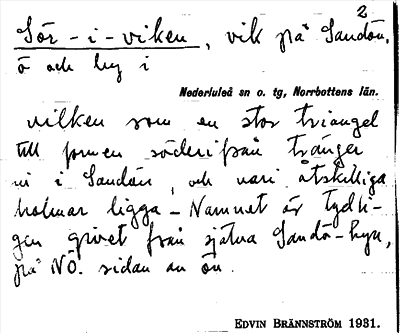 2
Sör-i-viken, vik på Sandön,
ö och by i
Nederluleå sn o. tg, Norrbottens län.
vilken som en stor triangel
till formen söderifrån tränger
in i Sandön, och vari åtskilliga
holmar ligga – Namnet är tydli-
gen givet från själva Sandö-byn,
på NÖ. sidan av ön.
EDVIN BRÄNNSTRÖM 1931.